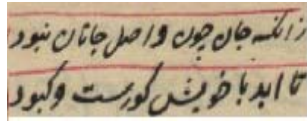 زانکه جان چون واصل جانان نبود
تا ابد با خویش کورست و کبود